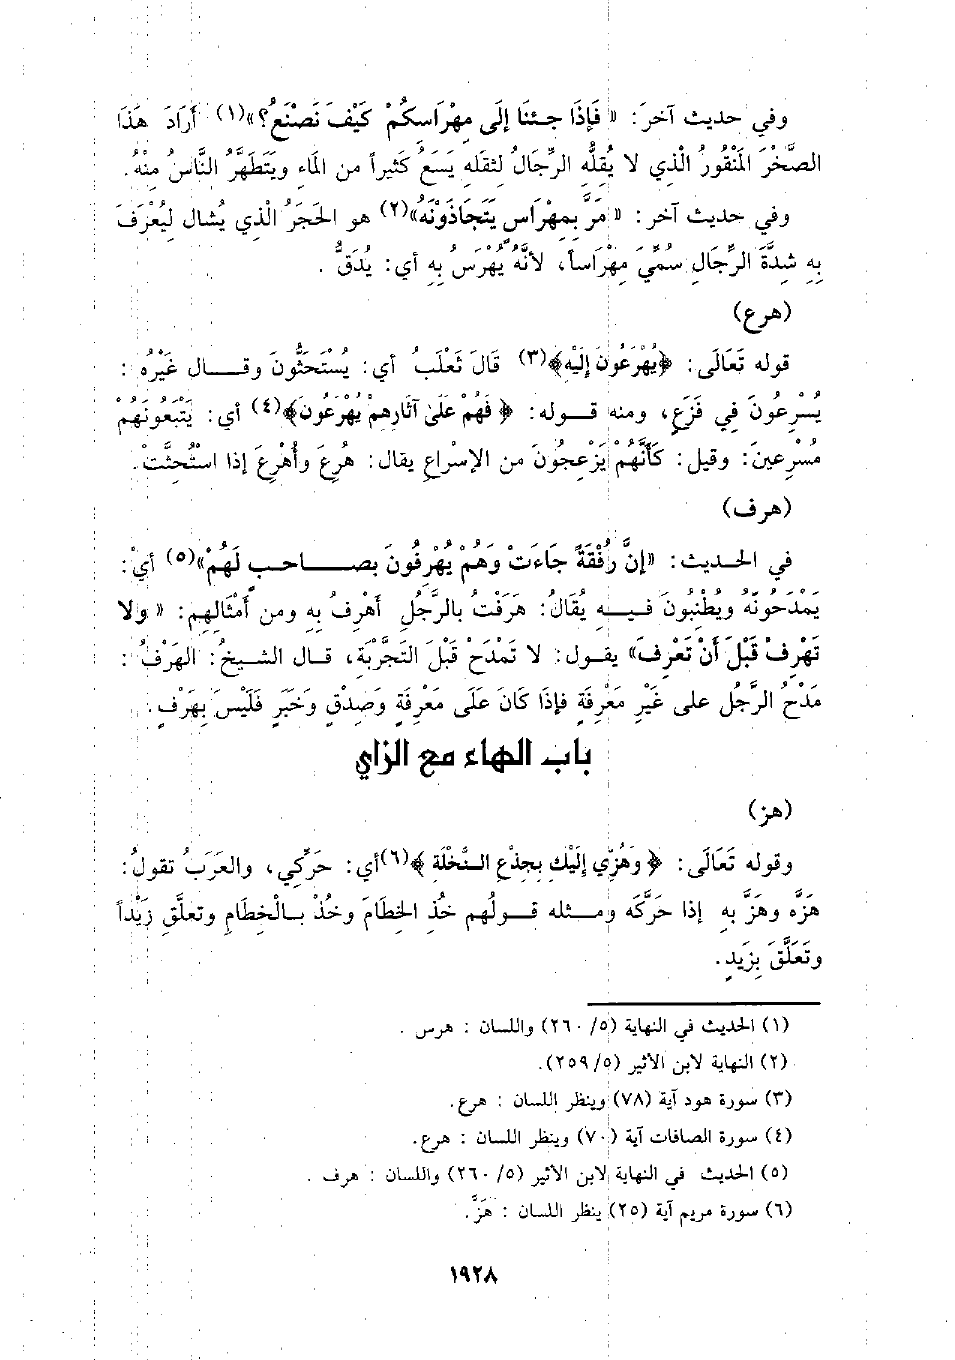 وفي حديث آخرَ: « فَإِذَا جـئنَا إِلَى مِهْرَاسِكُمْ كَيْفَ نَصْنَعُ؟»(١) أَرَادَ هَذَا
الصَّخْرَ المَنْقُورَ الْذي لا يُقِلُّه الرِّجَالُ لِثقَلِهِ يَسَعُ كَثيراً من المَاءِ ويَتَطَهَّرُ النَّاسُ مِنْهُ.
وفي حديث آخر: « مَرَّ بِمِهْرَاسٍ يَتَجَاذَوْنَهُ»(٢) هو الحَجَرُ الْذي يُشال لِيُعْرَفَ
بِهِ شدَّةَ الرِّجَالِ سُمِّيَ مِهْرَاساً، لأنَّهُ يُهْرَسُ بِهِ أي: يُدَقُّ .
(هرع)
قوله تَعَالَى: ﴿يُهْرَعُونَ إِلَيْهِ﴾(٣) قَالَ ثَعْلَبُ أي: يُسْتَحَثُّونَ وقـــال غَيْرُه :
يُسْرِعُونَ فِي فَزَعٍ، ومنه قـــوله: ﴿ فَهُمْ عَلَىٰ آثَارِهِمْ يُهْرَعُونَ﴾(٤) أي: يَتبَعُونَهُمْ
مُسْرِعينَ: وقيل: كَأَنَّهُمْ يَزْعجُونَ من الإسراعِ يقال: هُرِعَ وأُهْرِعَ إذا استُحِثَّتْ.
(هرف)
في الحديث: «إنَّ رُفْقَةً جَاءَتْ وَهُمْ يُهْرِفُونَ بِصـــاحـبٍ لَهُمْ»(٥) أيْ:
يَمْدَحُونَهُ ويُطْنِبُونَ فيـــه يُقَالُ: هَرَفْتُ بالرَّجُلِ أَهْرِفُ بِهِ ومن أَمْثَالِهِم: « ولا
تَهْرِفْ قَبْلَ أَنْ تَعْرِفَ» يقـول: لا تَمْدَحْ قَبلَ التَّجرُبَة، قـال الشـيخُ: الهَرْفُ :
مَدْحُ الرَّجُل على غَيْرِ مَعْرِفَةٍ فإذَا كَانَ عَلَى مَعْرِفَةٍ وَصِدْقٍ وَخَبَرٍ فَلَيْسَ بِهَرْفٍ.
باب الهاء مع الزاي
(هز)
وقوله تَعَالَى: ﴿ وَهُزِّي إِلَيْكِ بِجِذْعِ النَّخْلَةِ ﴾(٦)أي: حَرِّكي، والعَرَبُ تقولُ:
هَزَّه وهَزَّ به إذا حَرَّكَه ومـــثله قـــولُهم خُذِ الخِطَامَ وخُذْ بـالْخِطَامِ وتعلَّقَ زَيْداً
وتَعَلَّقَ بِزَيدٍ.
(١) الحديث في النهاية (٥/ ٢٦٠) واللسان : هرس .
(٢) النهاية لابن الأثير (٥/ ٢٥٩).
(٣) سورة هود آية (٧٨) وينظر اللسان : هرع.
(٤) سورة الصافات آية (٧٠) وينظر اللسان : هرع.
(٥) الحديث في النهاية لابن الأثير (٥/ ٢٦٠) واللسان : هرف .
(٦) سورة مريم آية (٢٥) ينظر اللسان : هَزَّ.
١٩٢٨